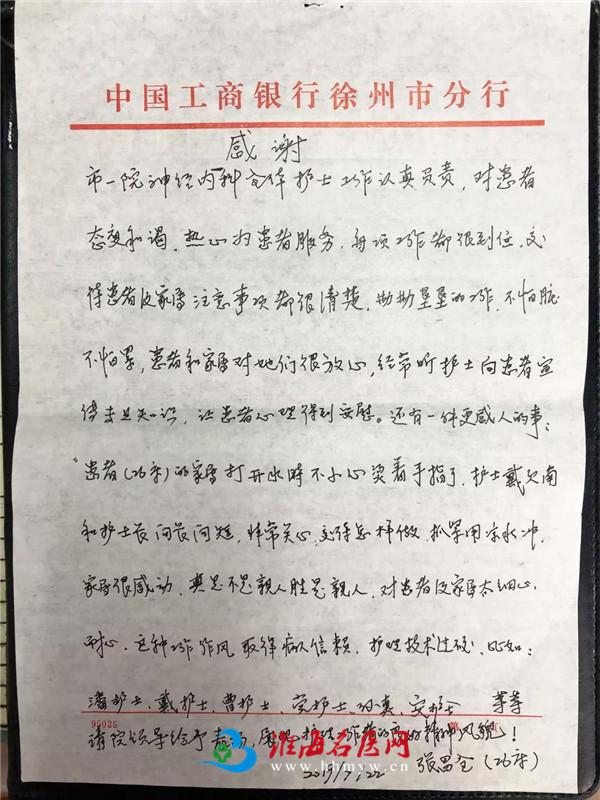 中国工商银行徐州市分行
感谢
市一院神经内科全体护士工作认真负责，对患者
态度和谒，热心为患者服务，每项工作都很到位，交
待患者及家属注意事项都很清楚，勤勤垦垦的工作，不怕脏
不怕累，患者和家属对她们很放心，经常听护士向患者宣
传专业知识，让患者心理得到安慰。还有一件更感人的事：
"患者(26床)的家属打开水时不小心烫着手指了，护士戴 南
和护士长问长问短，非常关心，交待怎样做，抓紧用凉水冲，
家属很感动，真是不是亲人胜是亲人，对患者及家属太细心，
耐心，这种工作作风取得病人信赖，护理技术过硬，比如：
潘护士、戴护士、曹护士、 护士、孙真、安护士 等等
95025
请院领导给予表扬，展现护理工作者的 精神风貌！
淮海名医网
www.hhmyw.com
张昌全(26床)
2019,7,22